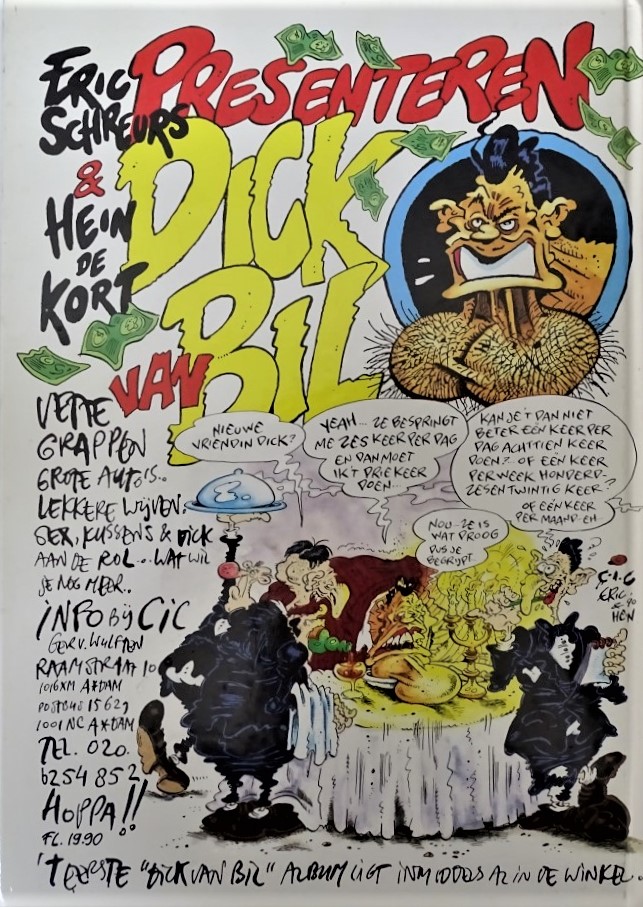 ERIC
SCHREURS
&
HEIN
DE
KORT
PRESENTEREN
DICK
VAN BIL
VETTE
GRAPPEN
GROTE AUTO'S..
LEKKERE WIJVEN.
SEX, KUSSENS & DICK
AAN DE ROL... WAT WIL
JE NOG MEER..
INFO BIJ CIC
GER V. WULFTEN
RAAMSTRAAT 10
1016XM A*DAM
POSTBUS 15629
1001 NC A*DAM
TEL. 020.
6254852
HOPPA!!
FL. 19.90
NIEUWE
VRIENDIN DICK?
YEAH... ZE BESPRINGT
ME ZES KEER PER DAG
EN DAN MOET
IK'T DRIE KEER
DOEN...
KAN JE'T DAN NIET
BETER EÉN KEER PER
DAG ACHTTIEN KEER
DOEN?.. OF EÉN KEER
PER WEEK HONDERD-
ZESENTWINTIG KEER..
OF EÉN KEER
PER MAAND-EH
NOU-ZE IS
WAT DROOG
DUS JE
BEGRIJPT..
C.I.C
ERIC.
& 90
HEIN
'T EERSTE "DICK VAN BIL" ALBUM LIGT INMIDDELS AL IN DE WINKEL.